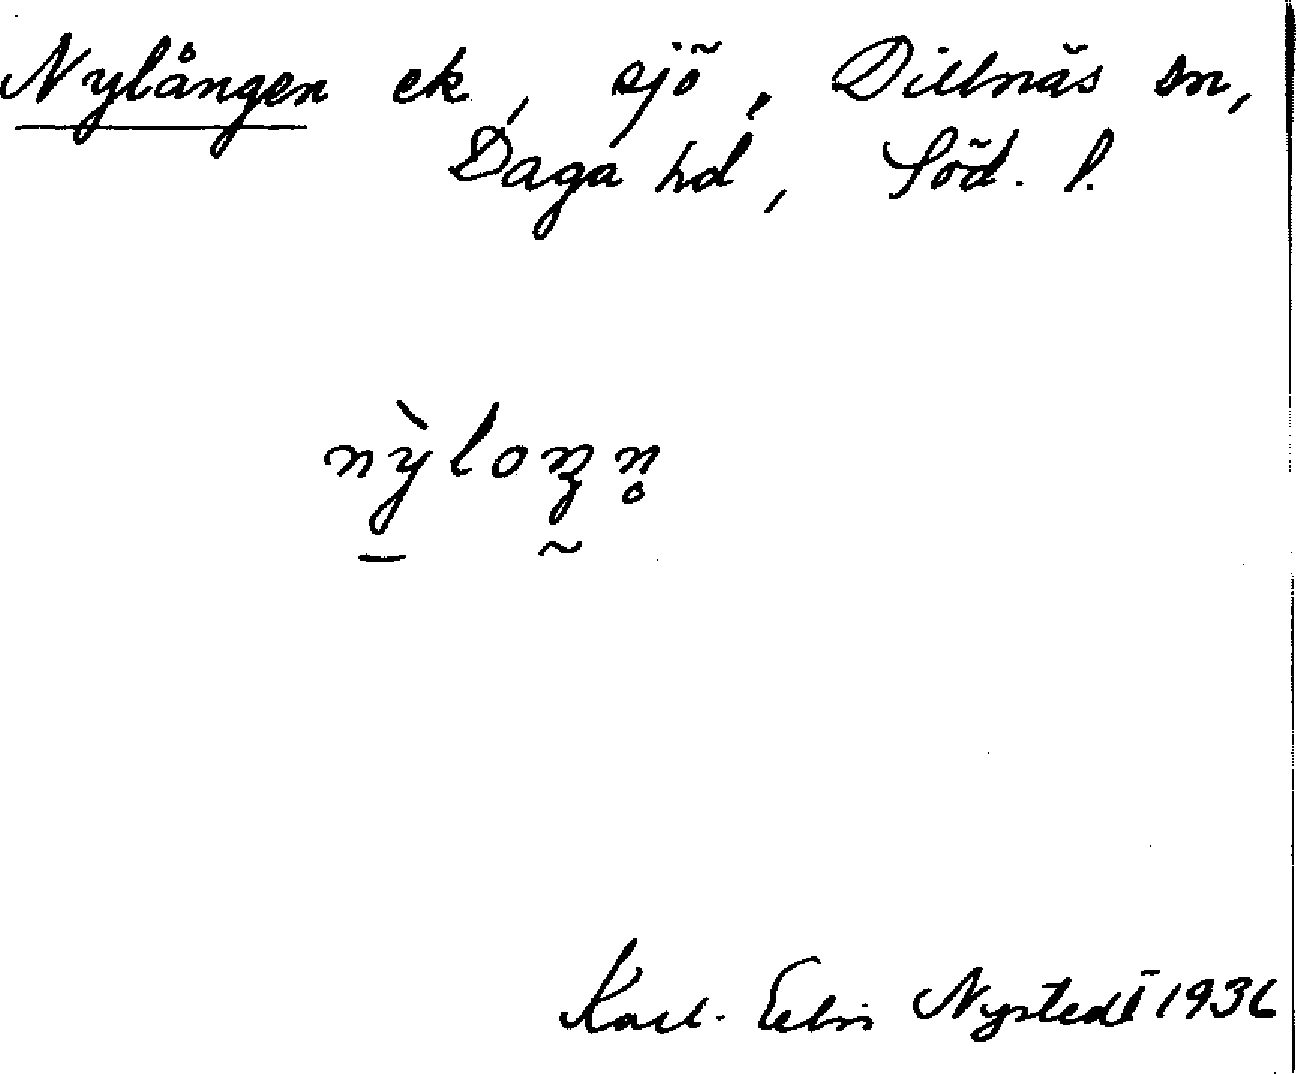 Nylången ek, sjö, Dillnäs sn,
Daga hd, Söd. l.
nỳ̠loŋ̰n̥
Karl-Elis Nystedt 1936